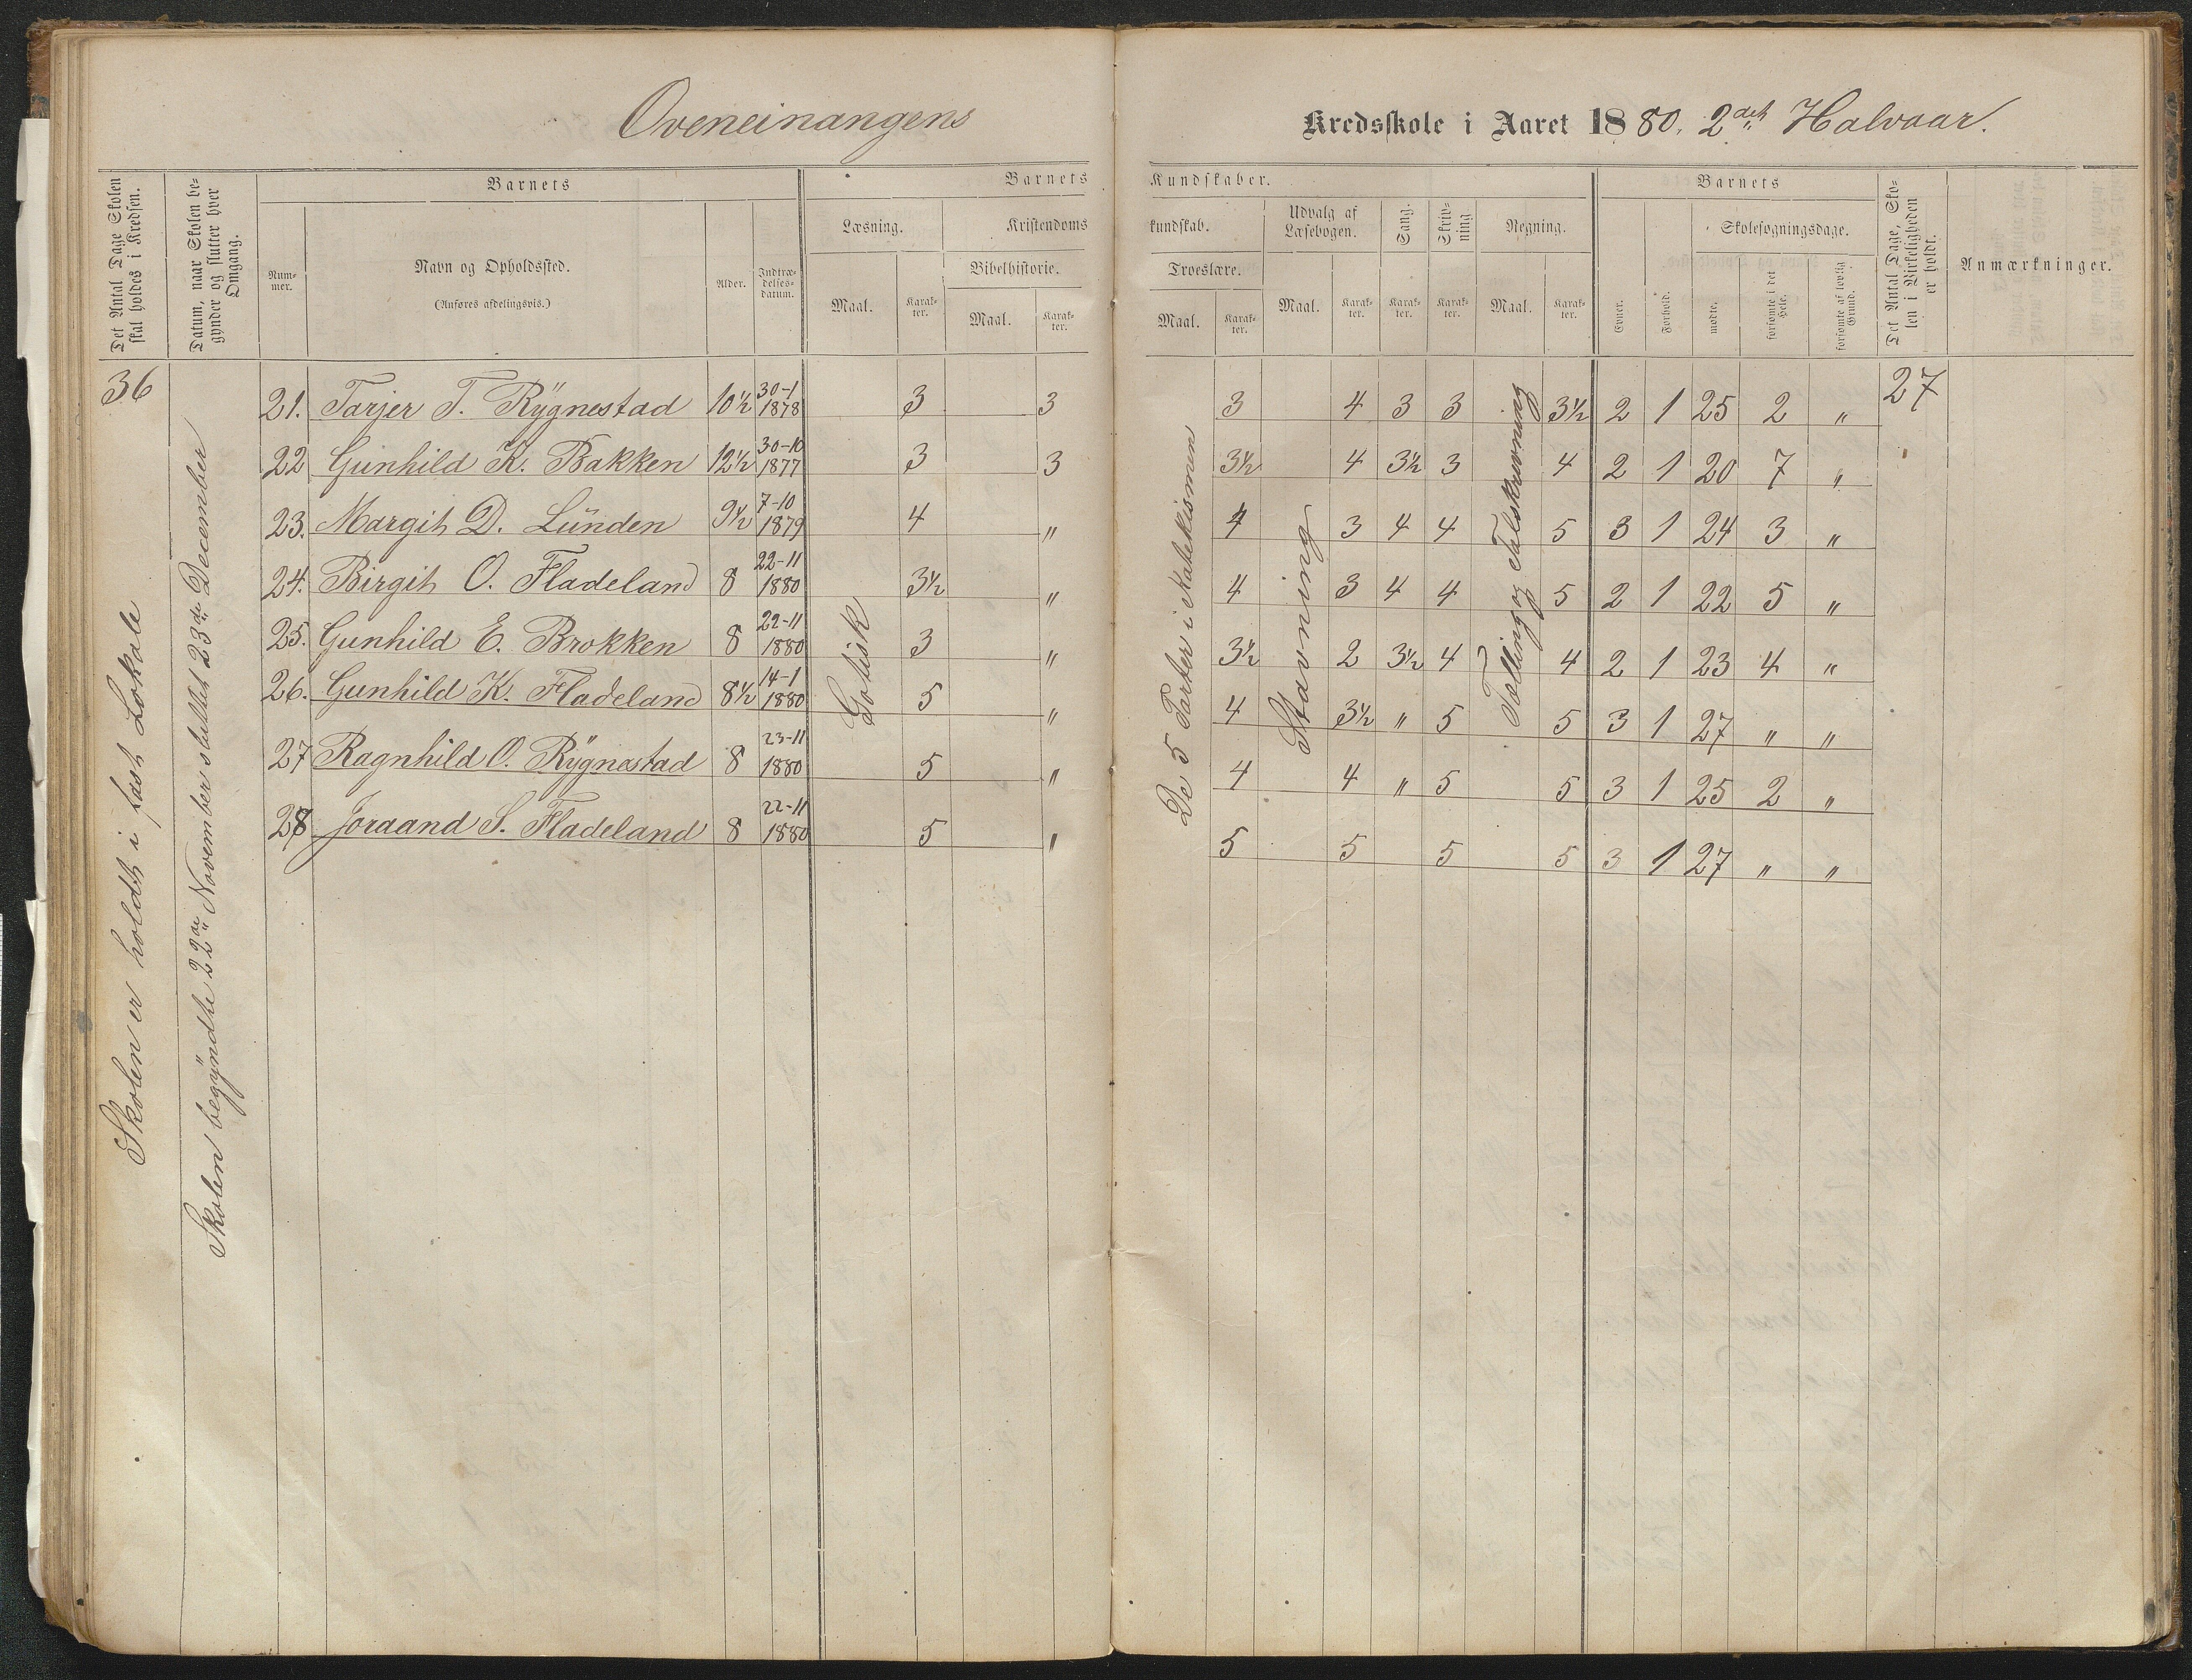 Oveneinangens Kredsskole i Aaret 1880. 2det Halvaar.
Det Antal Dage Skolen skal holdes i Kredsen.
Datum, naar Skolen begynder og slutter hver Omgang.
Barnets
Nummer.
Navn og Opholdssted.
(Anføres afdelingsvis.)
Alder.
Indtrædelsesdatum.
Barnets Kundskaber.
Læsning.
Maal.
Karakter.
Kristendomskundskab.
Bibelhistorie.
Maal.
Karakter.
Troeslære.
Maal.
Karakter.
Udvalg af Læsebogen.
Maal.
Karakter.
Sang.
Karakter.
Skrivning
Karakter.
Regning.
Maal.
Karakter.
Barnets
Evner.
Forhold.
Skolesøgningsdage.
mødte.
forsømte i det Hele.
forsømte af lovlig Grund.
Det Antal Dage, Skolen i Virkeligheden er holdt.
Anmærkninger.
36
Skolen er holdt i fast Lokale
Skolen begyndte 22de November sluttet 23de December
Gotisk
De 5 Parter i Katekismen
Stavning
Tælling og Talskrivning
21. Tarjer T. Rygnestad 10½ 30-1 1878 3 3 3 4 3 3 3½ 2 1 25 2 " 27
22 Gunhild K. Bakken 12½ 30-10 1877 3 3 3½ 4 3½ 3 4 2 1 20 7 "
23. Margit D. Lunden 9½ 7-10 1879 4 " 4 3 4 4 5 3 1 24 3 "
24. Birgit O. Fladeland 8 22-11 1880 3½ " 4 3 4 4 5 2 1 22 5 "
25. Gunhild E. Brokken 8 22-11 1880 3 " 3½ 2 3½ 4 4 2 1 23 4 "
26. Gunhild K. Fladeland 8½ 14-1 1880 5 " 4 3½ " 5 5 3 1 27 " "
27 Ragnhild O. Rygnestad 8 23-11 1880 5 " 4 4 " 5 5 3 1 25 2 "
28 Joraand S. Fladeland 8 22-11 1880 5 " 5 5 5 5 3 1 27 " "